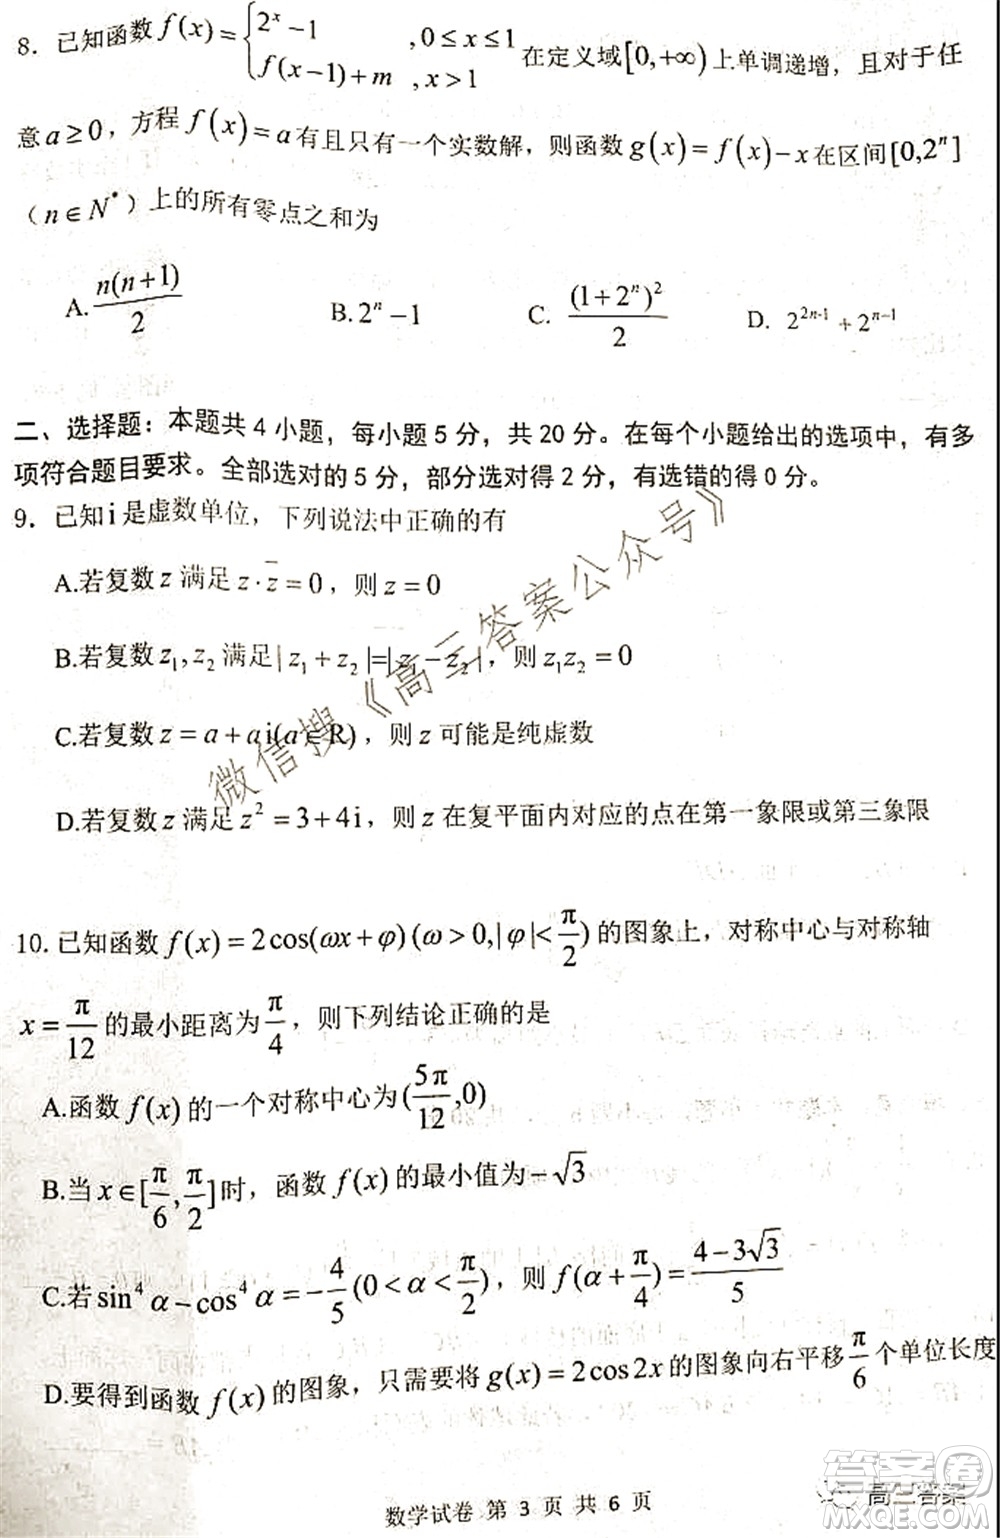 8. 已知函数 f(x)={2ˣ−1 ,0≤x≤1 f(x−1)+m ,x>1 在定义域[0,+∞)上单调递增，且对于任
意 a≥0，方程 f(x)=a有且只有一个实数解，则函数 g(x)=f(x)−x在区间[0,2ⁿ]
（n∈N*）上的所有零点之和为
A. n(n+1)/2 B. 2ⁿ−1 C. (1+2ⁿ)²/2 D. 2²ⁿ⁻¹+2ⁿ⁻¹
二、选择题：本题共 4 小题，每小题 5 分，共 20 分。在每个小题给出的选项中，有多
项符合题目要求。全部选对的 5 分，部分选对得 2 分，有选错的得 0 分。
9. 已知 i 是虚数单位，下列说法中正确的有
A.若复数 z 满足 z·z̄=0，则 z=0
B.若复数 z₁,z₂ 满足|z₁+z₂|=|z₁−z₂|，则 z₁z₂=0
C.若复数 z=a+ai(a∈R)，则 z 可能是纯虚数
D.若复数 z 满足 z²=3+4i，则 z 在复平面内对应的点在第一象限或第三象限
10. 已知函数 f(x)=2cos(ωx+φ)(ω>0,|φ|<π/2)的图象上，对称中心与对称轴
x=π/12 的最小距离为 π/4，则下列结论正确的是
A.函数 f(x) 的一个对称中心为(5π/12,0)
B.当 x∈[π/6,π/2]时，函数 f(x) 的最小值为−√3
C.若 sin⁴α−cos⁴α=−4/5(0<α<π/2)，则 f(α+π/4)=(4−3√3)/5
D.要得到函数 f(x) 的图象，只需要将 g(x)=2cos2x的图象向右平移 π/6 个单位长度
数学试卷 第 3 页 共 6 页
微信搜《高三答案公众号》
高三答案
答案圈
MXQE.COM